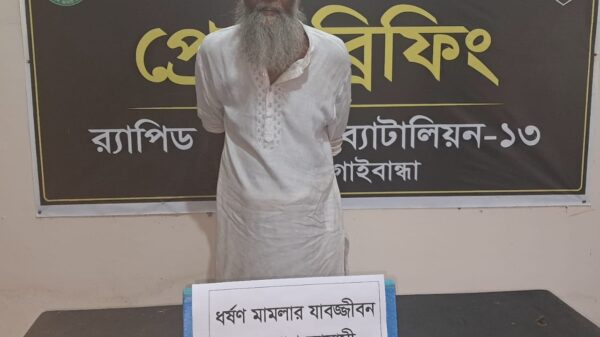 প্রে ব্রিফিং
র‍্যাপিড ব্যাটালিয়ন-১৩
গাইবান্ধা
ধর্ষণ মামলার যাবজ্জীবন